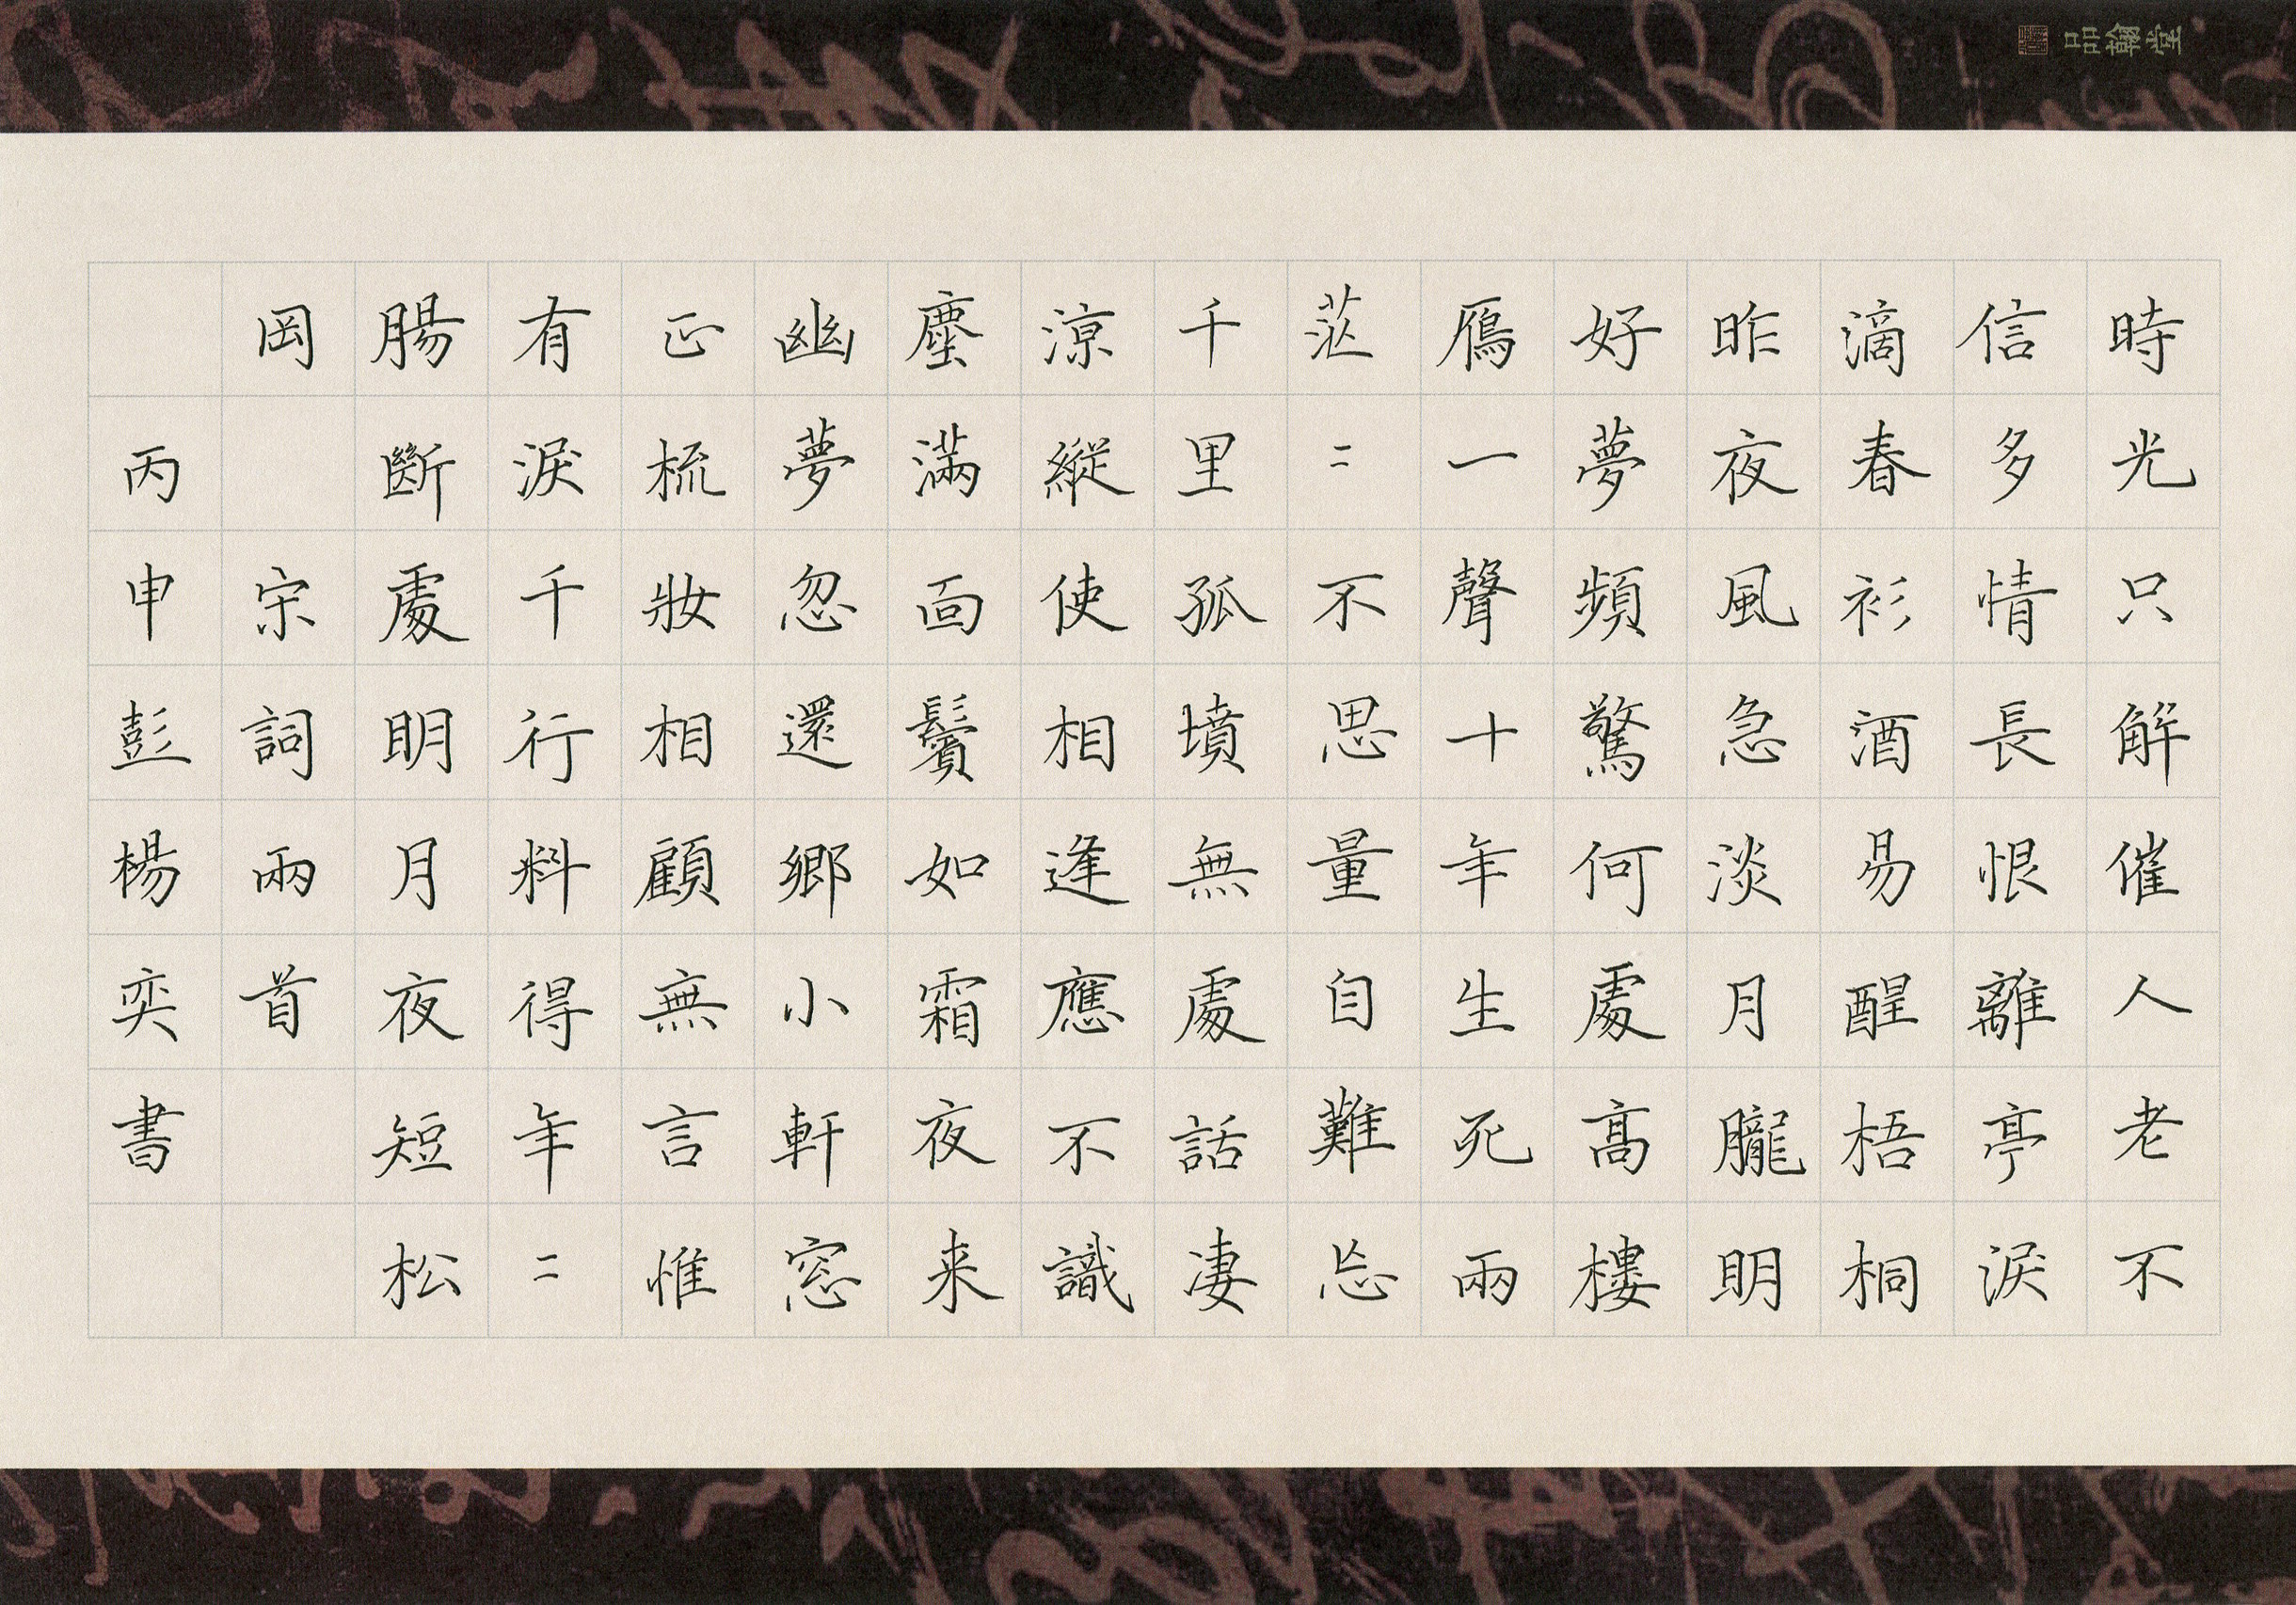 時光只解催人老不
信多情長恨離亭淚
滴春衫酒易醒梧桐
昨夜風急淡月朧明
好夢頻驚何處高樓
鴈一聲十年生死兩
茫〻不思量自難忘
千里孤墳無處話凄
涼縱使相逢應不識
塵滿面鬢如霜夜来
幽夢忽還鄉小軒窓
正梳妝相顧無言惟
有淚千行料得年〻
腸斷處明月夜短松
岡 宋詞兩首
丙申彭楊奕書
品翰堂